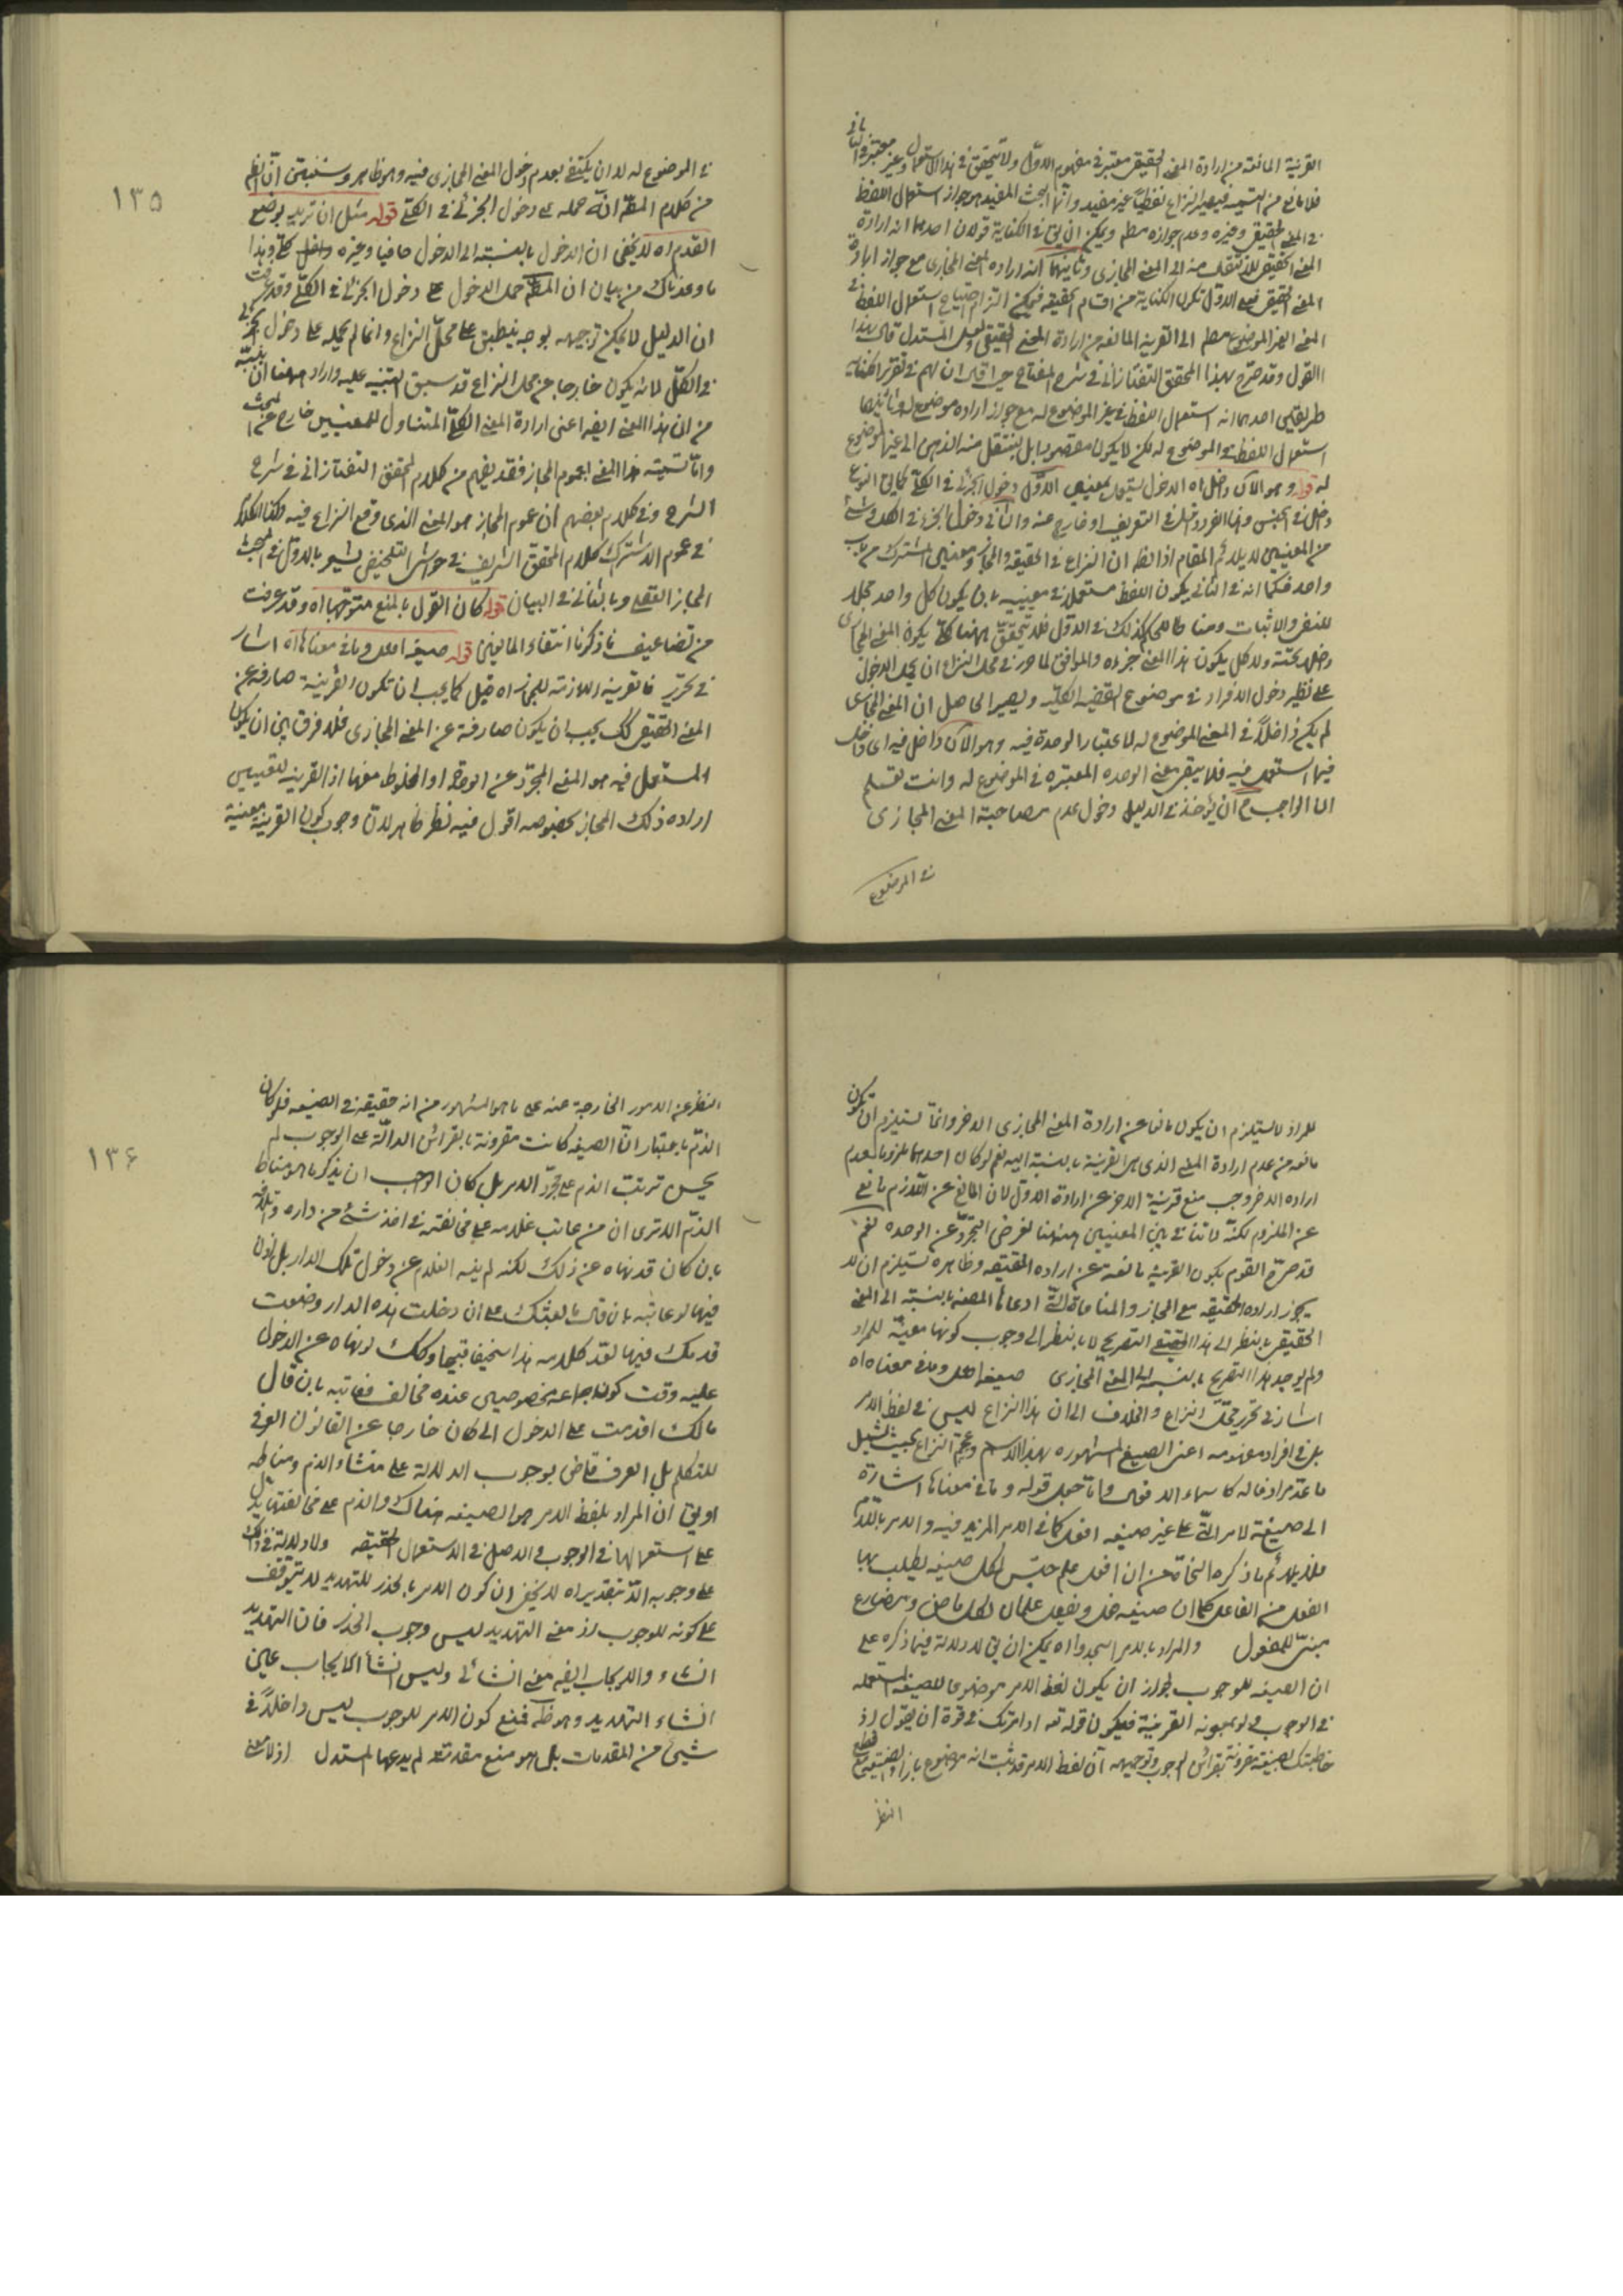 القرنية المانعة من ارادة المعنى الحقيقى معتبر فى مفهوم الاول ولا يتحقق فى هذا الاستعمال وغير معتبر فى الثانى
فلا مانع من التسمية فيصير النزاع لفظيا غير مفيد وانما البحث المفيد هو جواز استعمال اللفظ
فى المعنى الحقيقى وغيره وعدم جوازه مطم ويمكن ان يق فى الكناية قولان احدهما انه ارادة
المعنى الحقيقى للانتقال منه الى المعنى المجازى وثانيهما انه ارادة المعنى المجازى مع جواز ارادة
المعنى الحقيقى فعلى الاول تكون الكناية من اقسام الحقيقة فيمكن التزام احتياج استعمال اللفظ فى
المعنى الغير الموضوع مطم الى القرينة المانعة من ارادة المعنى الحقيقى ولعل المستدل قال بهذا
القول وقد صرح بهذا المحقق التفتازانى فى شرح المفتاح حيث قال ان لهم فى تقرير الكناية
طريقين احدهما انه استعمال اللفظ فى غير الموضوع له مع جواز ارادة موضوع له وثانيهما
استعمال اللفظ فى الموضوع له لكن لا يكون مقصودا بل ينتقل منه الذهن الى غير الموضوع
له قوله وهو الآن داخل اه الدخول يستعمل بمعنيين الاول دخول الجزئى فى الكلى كما يق النوع
داخل فى الجنس وهذا الفرد داخل فى التعريف او خارج عنه والثانى دخول الجزء فى الكل وشئ
من المعنيين لا يلائم المقام اذ الظ ان النزاع فى الحقيقة والمجاز ومعنيى المشترك من باب
واحد فكما انه فى الثانى يكون اللفظ مستعملا فى معنييه بان يكون كل واحد محلا
للنفى والاثبات ومناطا للحكم كذلك فى الاول فلا يتحقق ههنا كلى يكون المعنى المجازى
داخلا تحته ولا كل يكون هذا المعنى جزءه والموافق لما حرر فى محل النزاع ان يحمل الدخول
على نظير دخول الافراد فى موضوع القضية الكلية ويصير الحاصل ان المعنى المجازى
لم يكن داخلا فى المعنى الموضوع له لاعتبار الوحدة فيه وهو الآن داخل فيه اى داخل
فيما استعمل فيه فلا يبقى معنى الوحدة المعتبرة فى الموضوع له وانت تعلم
ان الواجب ح ان يؤخذ فى الدليل دخول عدم مصاحبة المعنى المجازى
فى الموضوع
١٣٥
فى الموضوع له لا ان يكتفى بعدم دخول المعنى المجازى فيه وهو ظاهر وستنبئن ان الظ
من كلام المصّ انه حمله على دخول الجزئى فى الكلى قوله مثل ان تريد بوضع
القدم اه لا يخفى ان الدخول بالنسبة الى الدخول حافيا وغيره داخل كلى وهذا
ما وعدناك من بيان ان المصّ حمل الدخول على دخول الجزئى فى الكلى وقد عرفت
ان الدليل لا يمكن توجيهه بوجه ينطبق على محل النزاع وانما لم يحمله على دخول الجزء
فى الكل لانه يكون خارجا عن محل النزاع قد سبق التنبيه عليه واراد ههنا ان ينبه
من ان هذا المعنى ايضا اعنى ارادة المعنى الكلى المتناول للمعنيين خارج عن المبحث
واما تسمية هذا المعنى بعموم المجاز فقد يفهم من كلام المحقق التفتازانى فى شرح
الشرح وفى كلام بعضهم ان عموم المجاز هو المعنى الذى وقع النزاع فيه وكذا الكلام
فى عموم الاشتراك كلام المحقق الشريف فى حواشى التلخيص يشير بالاول فى بحث
المجاز العقلى وبالثانى فى البيان قوله كان القول بالمنع متوجها اه وقد عرفت
من تضاعيف ما ذكرنا انتفاء المانعين قوله صيغة افعل وما فى معناها اه اشار
فى تحرير فالقرينة اللازمة للمجاز اه قيل كما يجب ان تكون القرينة صارفة عن
المعنى الحقيقى كك يجب ان يكون صارفة عن المعنى المجازى فلا فرق بين ان يكون
المستعمل فيه هو المعنى المجرد عن الوحدة او المخلوط معها اذ القرينة للتعيين
ارادة ذلك المجاز بخصوصه اقول فيه نظر ظاهر لان وجوب كون القرينة معينة
للمراد لا يستلزم ان يكون مانعا عن ارادة المعنى المجازى الاخر وانما تستلزم ان تكون
مانعة من عدم ارادة المعنى الذى هى القرينة بالنسبة اليه نعم لو كان احدهما ملزوما لعدم
ارادة الاخر وجب منع قرينة الاخر عن ارادة الاول لان المانع عن اللازم مانع
عن الملزوم لكنه لا تنافى بين المعنيين ههنا لفرض التجرد عن الوحدة نعم
قد صرح القوم بكون القرينة مانعة عن ارادة الحقيقة وظاهره تستلزم ان لا
يجوز ارادة الحقيقة مع المجاز والمنافاة التى ادعاها المصنف بالنسبة الى المعنى
الحقيقى بالنظر الى هذا التصريح لا بالنظر الى وجوب كونها معينة للمراد
ولم يوجد هذا التصريح بالنسبة الى المعنى المجازى صيغة افعل وما فى معناه اه
اشار فى تحرير محل النزاع والخلاف الى ان هذا النزاع ليس فى لفظ الامر
بل فى افراد مفهومه اعنى الصيغ المشهورة بهذا الاسم وعمم النزاع بحيث يشمل
ما عد مرادفا له كاسماء الافعال واما حمل قوله وما فى معناها اشارة
الى صيغة الامر التى على غير صيغة افعل كما فى الامر المزيد فيه والامر باللام
فلا يلائم ما ذكره النحاة من ان افعل علم جنس لكل صيغة يطلب بها
الفعل من الفاعل كما ان صيغة فعل ويفعل علمان لكل ماض ومضارع
مبنى للمفعول والمراد بالامر اسجدوا اه يمكن ان يق لا دلالة فيما ذكره على
ان الصيغة للوجوب لجواز ان يكون لفظ الامر موضوعا للصيغة المستعملة
فى الوجوب ولو بمعونة القرينة فيكون قوله تعه اذ امرتك فى قوة ان يقول اذ
خاطبتك بصيغة مقرونة بقرائن الوجوب وتوجيهه ان لفظ الامر قد ثبت انه موضوع بازاء الصيغة مع قطع
النظر
١٣۶
النظر عن الامور الخارجة عنه على ما هو المشهور من انه حقيقة فى الصيغة فلو كان
الذم باعتبار ان الصيغة كانت مقرونة بالقرائن الدالة على الوجوب لم
يحسن ترتب الذم على مجرد الامر بل كان الواجب ان يذكر ما هو مناط
الذم الا ترى ان من عاتب غلامه على مخالفته فى اخذ شئ من داره
بان كان قد نهاه عن ذلك لكنه لم ينه الغلام عن دخول تلك الدار بل اذن
فيها لو عاتبه بان قال ما بعثك على ان دخلت هذه الدار وضعت
قدمك فيها لعد كلامه هذا سخيفا قبيحا وكك لو نهاه عن الدخول
عليه وقت كون جماعة مخصوصين عنده فخالف فعاتبه بان قال
مالك اقدمت على الدخول الى كان خارجا عن القانون العرفى
للتكلم بل العرف قاض بوجوب الدلالة على منشاء الذم ومناطه
او يق ان المراد بلفظ الامر هو الصيغة هناك والذم على مخالفتها يدل
على استعمالها فى الوجوب والاصل فى الاستعمال الحقيقة ولا دلالة فى ذلك
على وجوبه الا بتقدير اه لا يخفى ان كون الامر بالحذر للتهديد لا يتوقف
على كونه للوجوب اذ معنى التهديد ليس وجوب الحذر فان التهديد
انشاء والايجاب ايضه معنى انشائى وليس انشاء الايجاب عين
انشاء التهديد وهو ظ فمنع كون الامر للوجوب ليس داخلا فى
شئ من المقدمات بل هو منع مقدمة لم يدعها المستدل اذ لا معنى